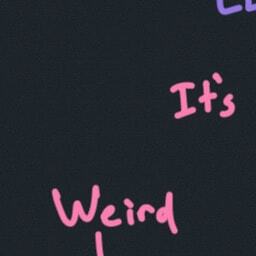 It's
Weird